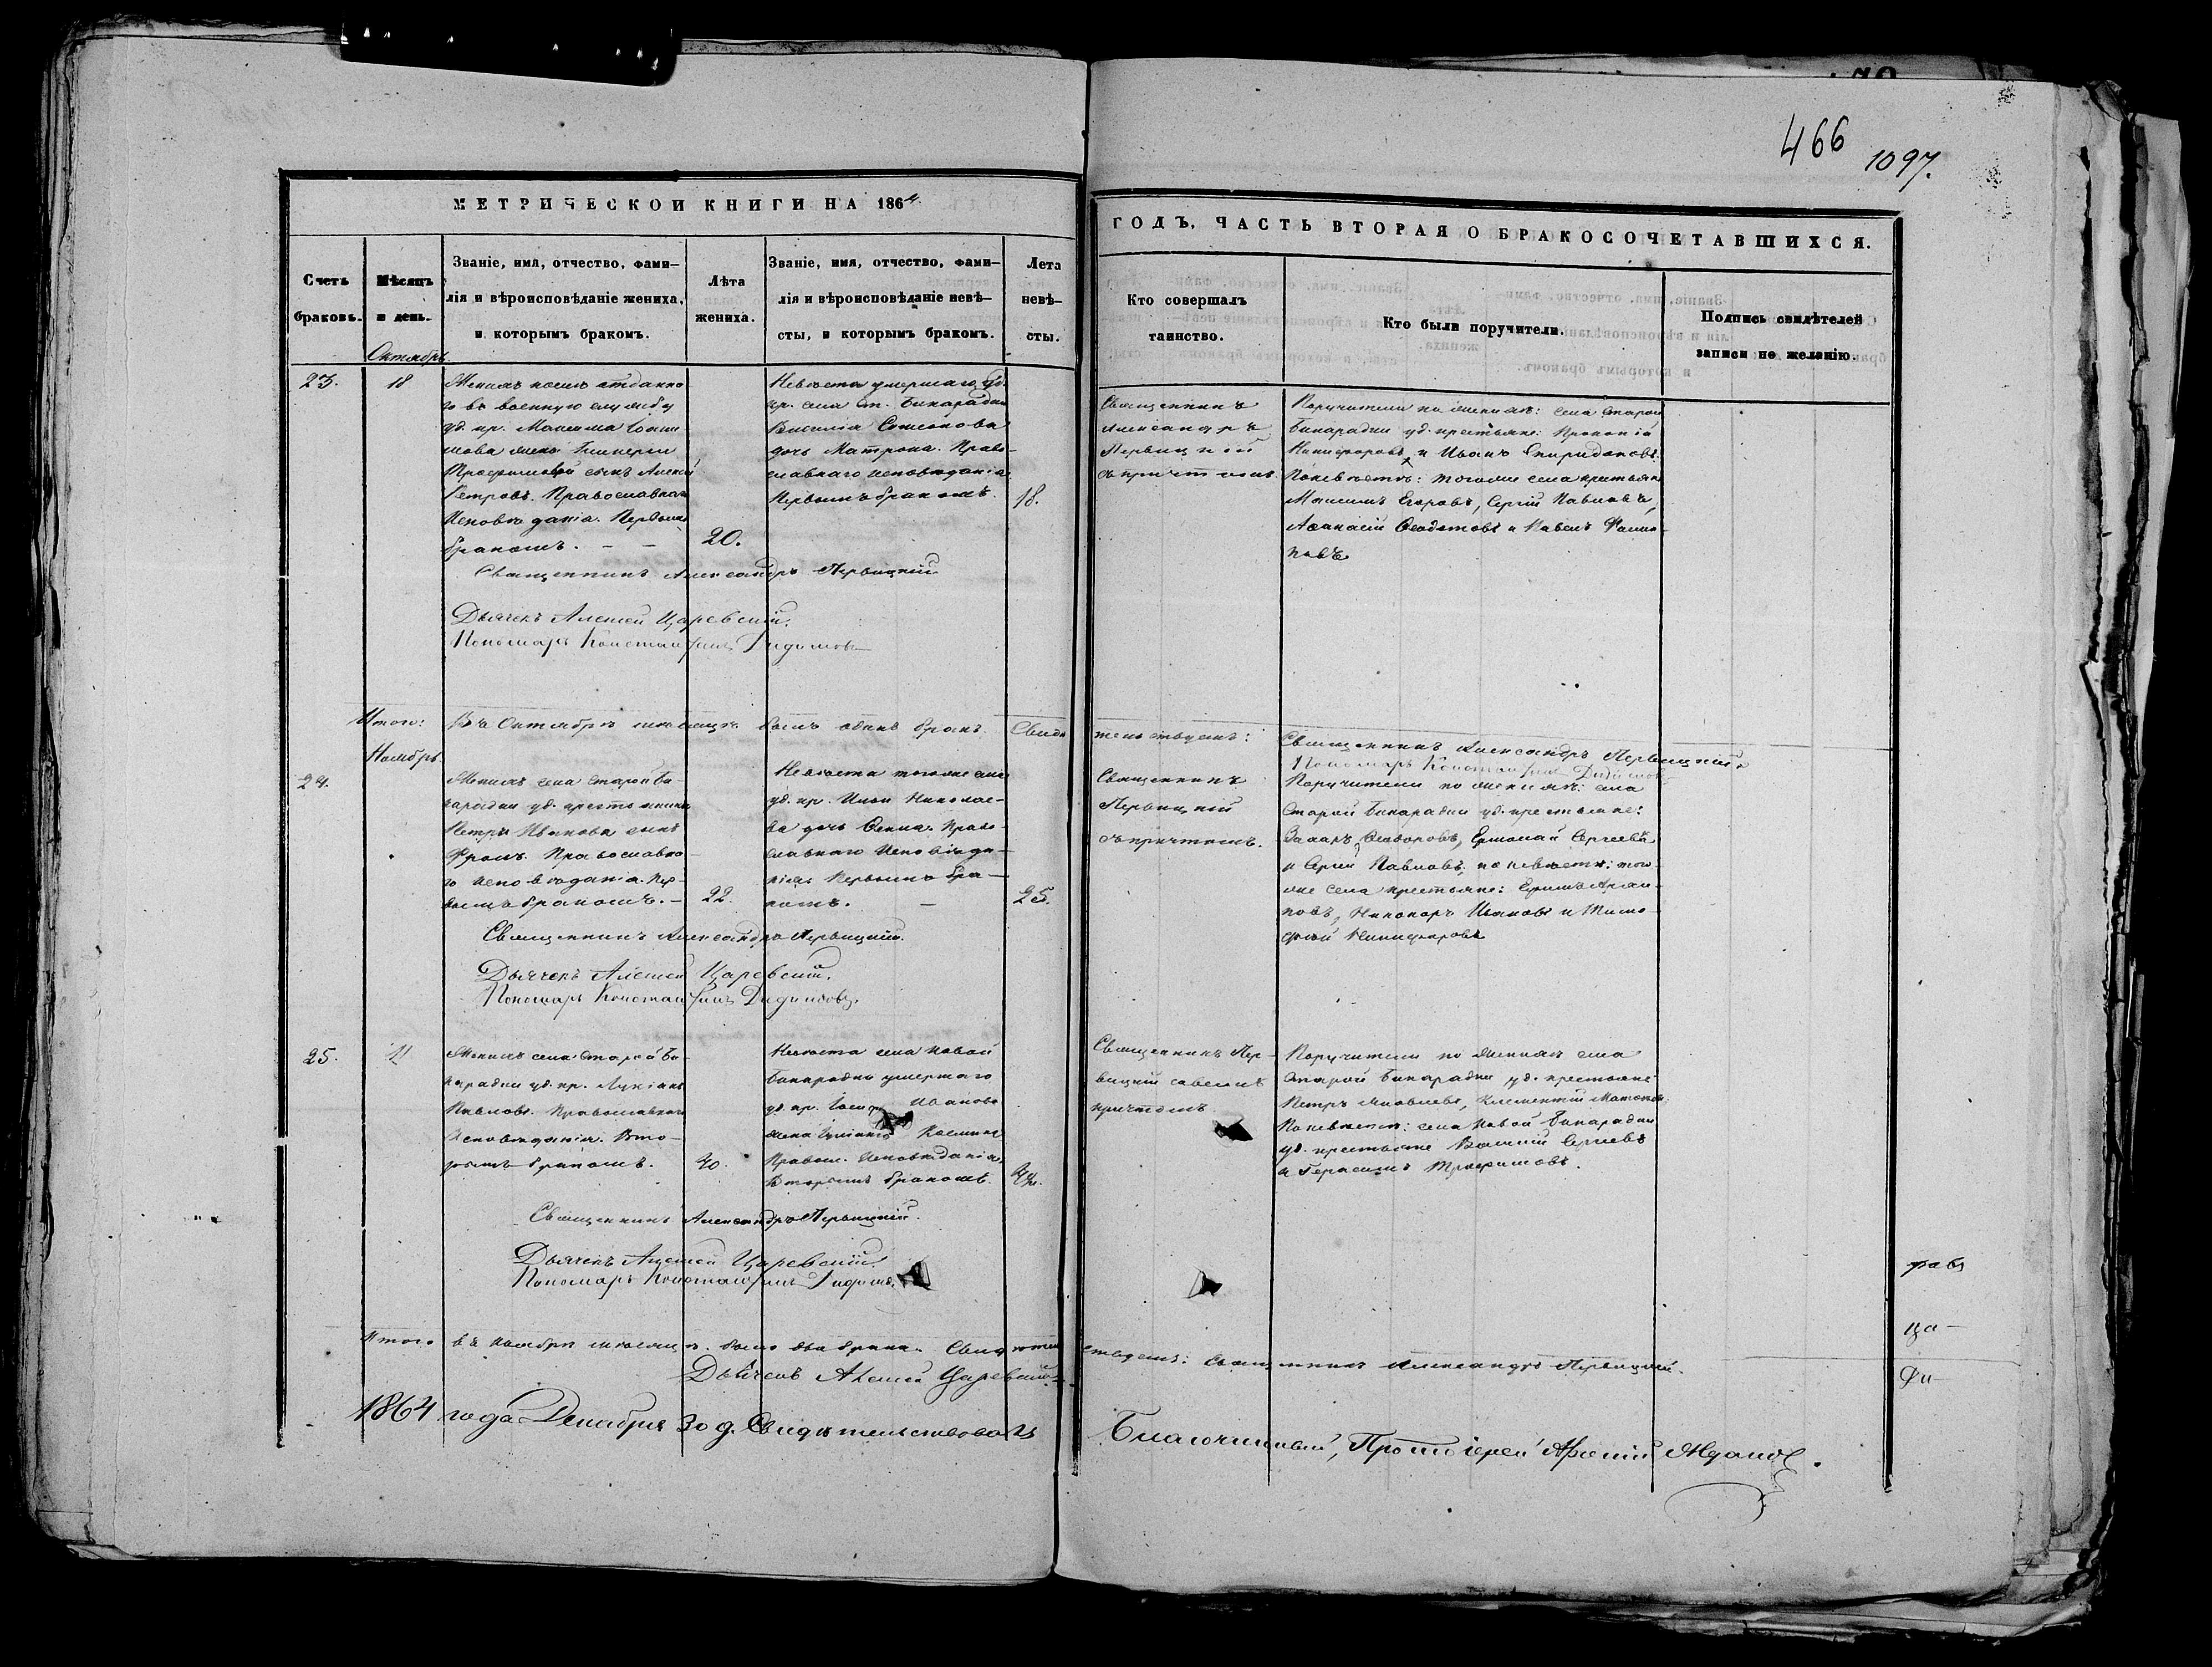 466
1097.
МЕТРИЧЕСКОЙ КНИГИ НА 1864
ГОДЪ, ЧАСТЬ ВТОРАЯ О БРАКОСОЧЕТАВШИХСЯ.
Счетъ
браковъ.
Мѣсяцъ
и день.
Званіе, имя, отчество, фами-
лія и вѣроисповѣданіе жениха,
и которымъ бракомъ.
Лѣта
жениха.
Званіе, имя, отчество, фами-
лія и вѣроисповѣданіе невѣ-
сты, и которымъ бракомъ.
Лета
невѣ-
сты.
Кто совершалъ
таинство.
Кто были поручители.
Подпись свидѣтелей
записи по желанію.
Октябрь
23.
18
Женихъ
отданна
го въ военную службу
уд. кр. Максима
Трофимовой сынъ Алексѣй
Петровъ. Православнаго
Исповѣданія. Первымъ
бракомъ.
20.
Невѣста умершаго уд.
кр. села ст. Бинарадки
Василія Семенова
дочь Матрона. Право-
славнаго исповѣданія
Первымъ бракомъ.
18.
Священникъ
Александръ
Первицкій
съ причтомъ.
Поручители по женихѣ: села старой
Бинарадки уд. крестьяне: Прокопій
Никифоровъ, и Иванъ Спиридоновъ.
По невѣстѣ: тогоже села крестьяне
Максимъ Егоровъ, Сергій Павловъ,
Афанасій Федотовъ и Павелъ Филип-
повъ.
Священникъ Александръ Первицкій
Дьячекъ Алексѣй Царевскій.
Пономарь Константинъ Дидимовъ
Итого: Въ Октябрѣ мѣсяцѣ былъ одинъ бракъ. Свидѣ
тельствуемъ: Священникъ Александръ Первицкій
Пономарь Константинъ Дидимовъ
Ноябрь
24.
Женихъ села старой Би-
нарадки уд. крестьянина
Петра Иванова сынъ
Фролъ. Православна-
го исповѣданія. Пер-
вымъ бракомъ.
22.
Невѣста тогоже села
уд. кр. Ильи Николае-
ва дочь Ѳекла. Право-
славнаго исповѣда-
нія. Первымъ бра-
комъ.
25.
Священникъ
Первицкій
съ причтомъ.
Поручители по женихѣ: села
Старой Бинарадки уд. крестьяне:
Захаръ Федоровъ, Ермолай Сергѣевъ
и Сергій Павловъ; по невѣстѣ: того-
же села крестьяне:
Никаноръ Ивановъ и Тимо-
фей Никифоровъ
Священникъ Александръ Первицкій.
Дьячекъ Алексѣй Царевскій.
Пономарь Константинъ Дидимовъ.
25.
11
Женихъ села Старой Би-
нарадки уд. кр. Лукіанъ
Павловъ. Православнаго
Исповѣданія. Вто-
рымъ бракомъ.
40.
Невѣста села Новой
Бинарадки умершаго
уд. кр. Иванова
жена
Правосл. исповѣданія,
Вторымъ бракомъ.
Священникъ Пер-
вицкій
причтомъ
Поручители по женихѣ села
Старой Бинарадки уд. крестьяне
Петръ Яковлевъ, Климентій
По невѣстѣ: села Новой Бинарадки
уд. крестьяне Василій Сергѣевъ
и Герасимъ Трофимовъ.
Священникъ Александръ Первицкій.
Дьячекъ Алексѣй Царевскій.
Пономарь Константинъ
Итого въ Ноябрѣ мѣсяцѣ было два брака. Свидѣтель
ствуемъ: Священникъ Александръ Первицкій.
Дьячекъ Алексѣй Царевскій
1864 года Декабря 30 д. Свидѣтельствовалъ
Благочинный, Протоіерей
ца-